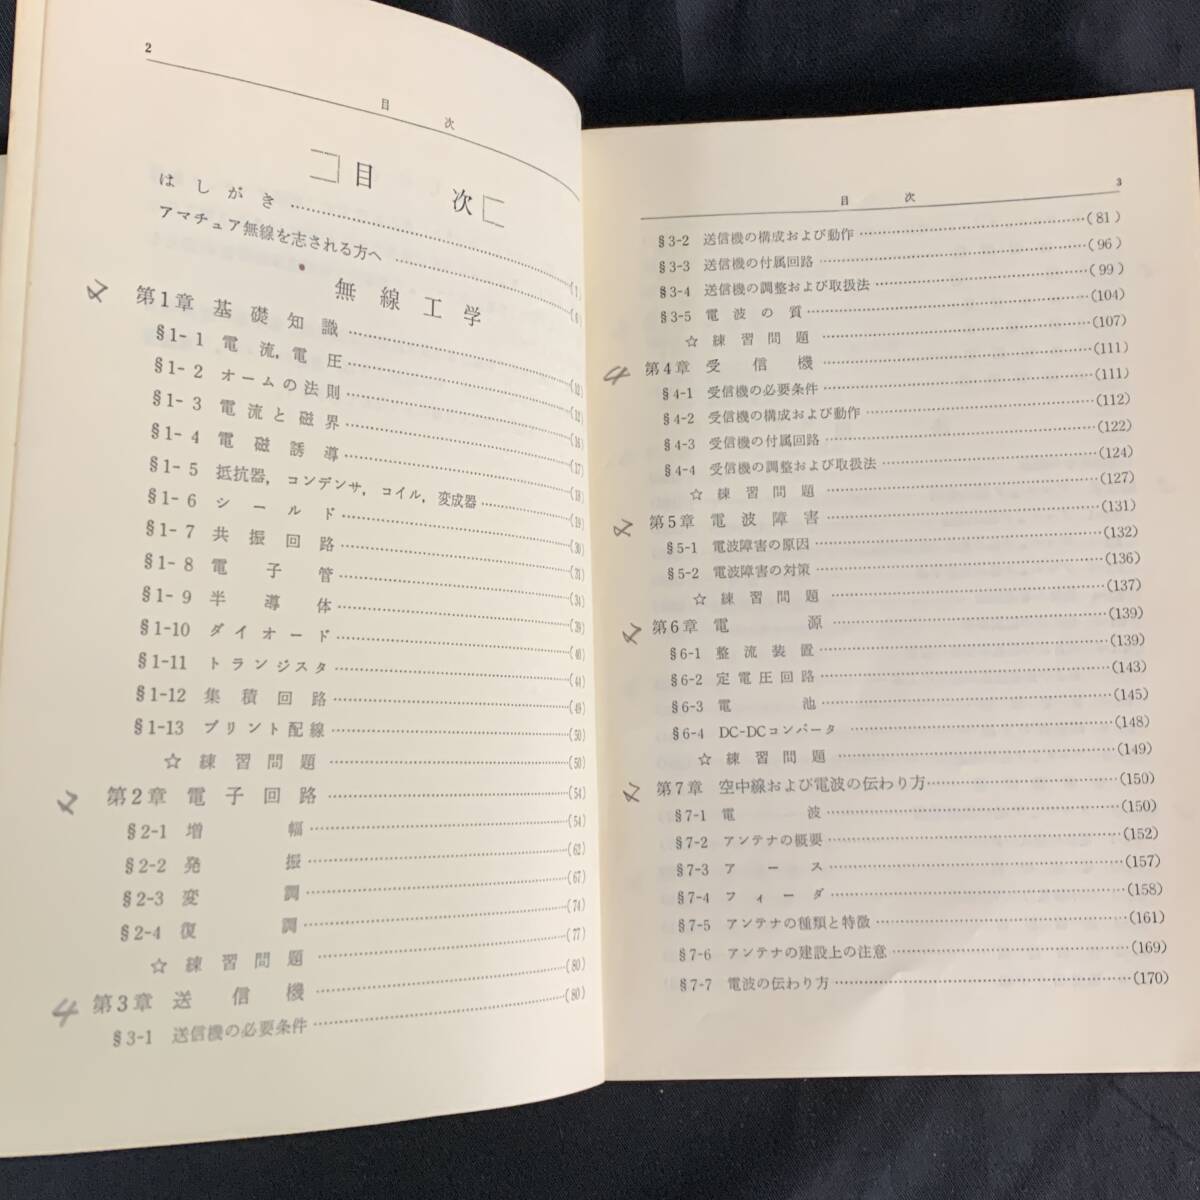 2
目 次
目 次
はしがき……(1)
アマチュア無線を志される方へ……(6)
無線工学
2 第1章 基礎知識
§1-1 電流,電圧……(12)
§1-2 オームの法則……(12)
§1-3 電流と磁界……(16)
§1-4 電磁誘導……(17)
§1-5 抵抗器,コンデンサ,コイル,変成器……(18)
§1-6 シールド……(19)
§1-7 共振回路……(30)
§1-8 電子管……(31)
§1-9 半導体……(34)
§1-10 ダイオード……(39)
§1-11 トランジスタ……(40)
§1-12 集積回路……(44)
§1-13 プリント配線……(49)
☆ 練習問題……(50)
2 第2章 電子回路……(54)
§2-1 増幅……(54)
§2-2 発振……(62)
§2-3 変調……(67)
§2-4 復調……(74)
☆ 練習問題……(77)
4 第3章 送信機……(80)
§3-1 送信機の必要条件……(80)
目 次
3
§3-2 送信機の構成および動作……(81)
§3-3 送信機の付属回路……(96)
§3-4 送信機の調整および取扱法……(99)
§3-5 電波の質……(104)
☆ 練習問題……(107)
4 第4章 受信機……(111)
§4-1 受信機の必要条件……(111)
§4-2 受信機の構成および動作……(112)
§4-3 受信機の付属回路……(122)
§4-4 受信機の調整および取扱法……(124)
☆ 練習問題……(127)
2 第5章 電波障害……(131)
§5-1 電波障害の原因……(132)
§5-2 電波障害の対策……(136)
☆ 練習問題……(137)
2 第6章 電源……(139)
§6-1 整流装置……(139)
§6-2 定電圧回路……(143)
§6-3 電池……(145)
§6-4 DC-DCコンバータ……(148)
☆ 練習問題……(149)
2 第7章 空中線および電波の伝わり方……(150)
§7-1 電波……(150)
§7-2 アンテナの概要……(152)
§7-3 アース……(157)
§7-4 フィーダ……(158)
§7-5 アンテナの種類と特徴……(161)
§7-6 アンテナの建設上の注意……(169)
§7-7 電波の伝わり方……(170)